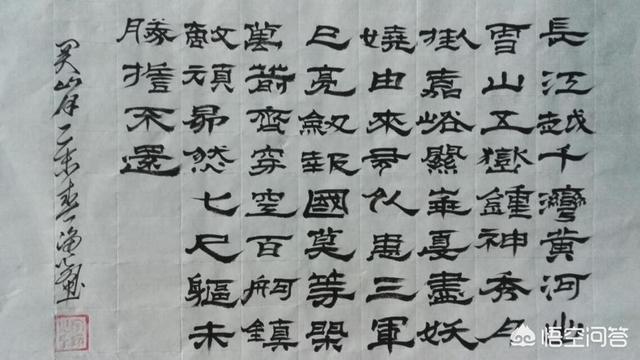 長江越千灣黃河出
雪山五嶽鍾神秀月
掛嘉峪關華夏盡妖
嬈由來患三軍
已亮劍報國莫等閑
萬箭齊穿空百舸鎮
敵頑昂然七尺軀未
勝不還
悟空问答